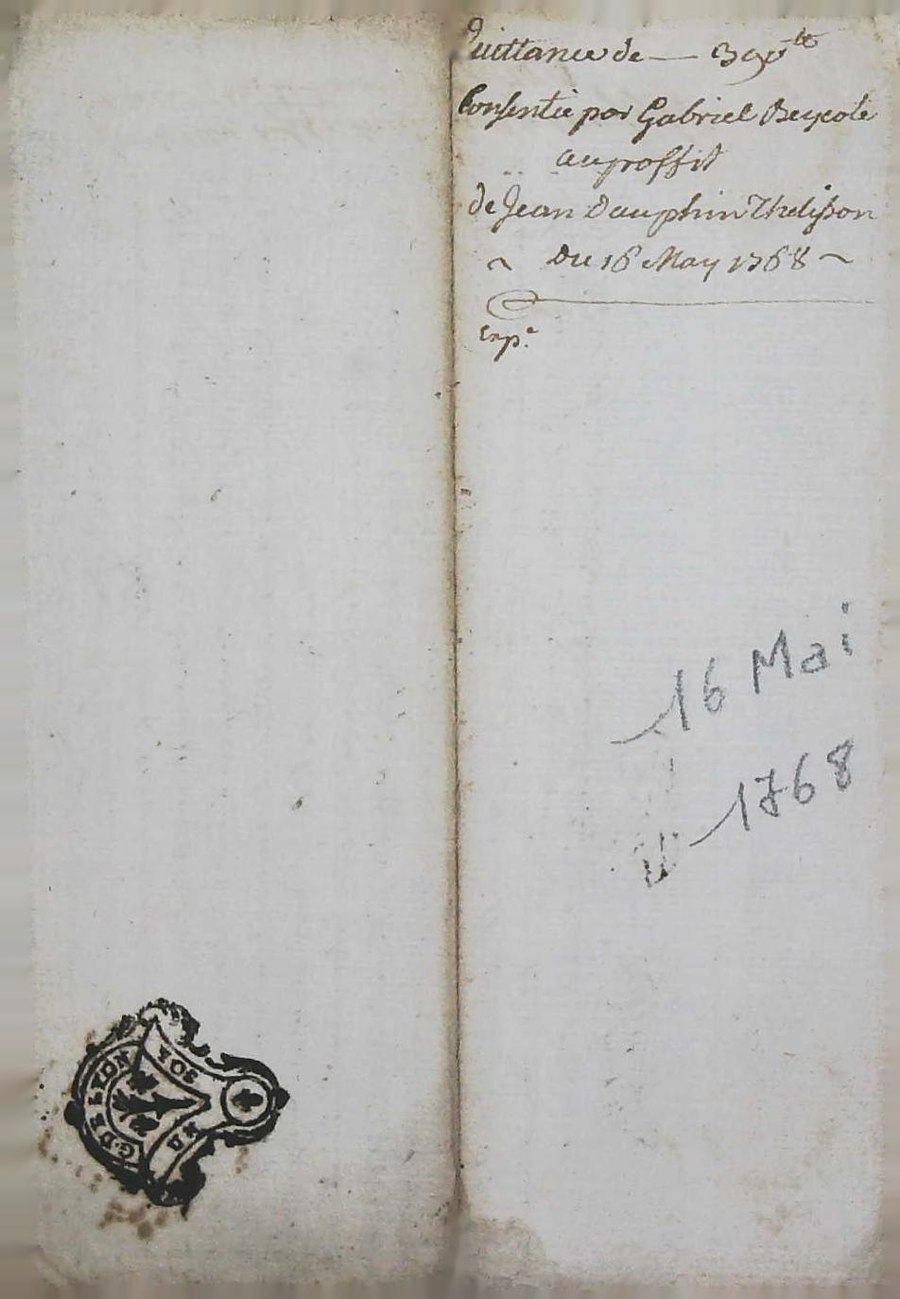 quittance de — 390 ₶
Consentie par Gabriel Beycole
au proffit
de Jean Dauphin Thelisson
~ Du 16 May 1768 ~
Exp.e
16 Mai
1768
G. DE LYON
SOL